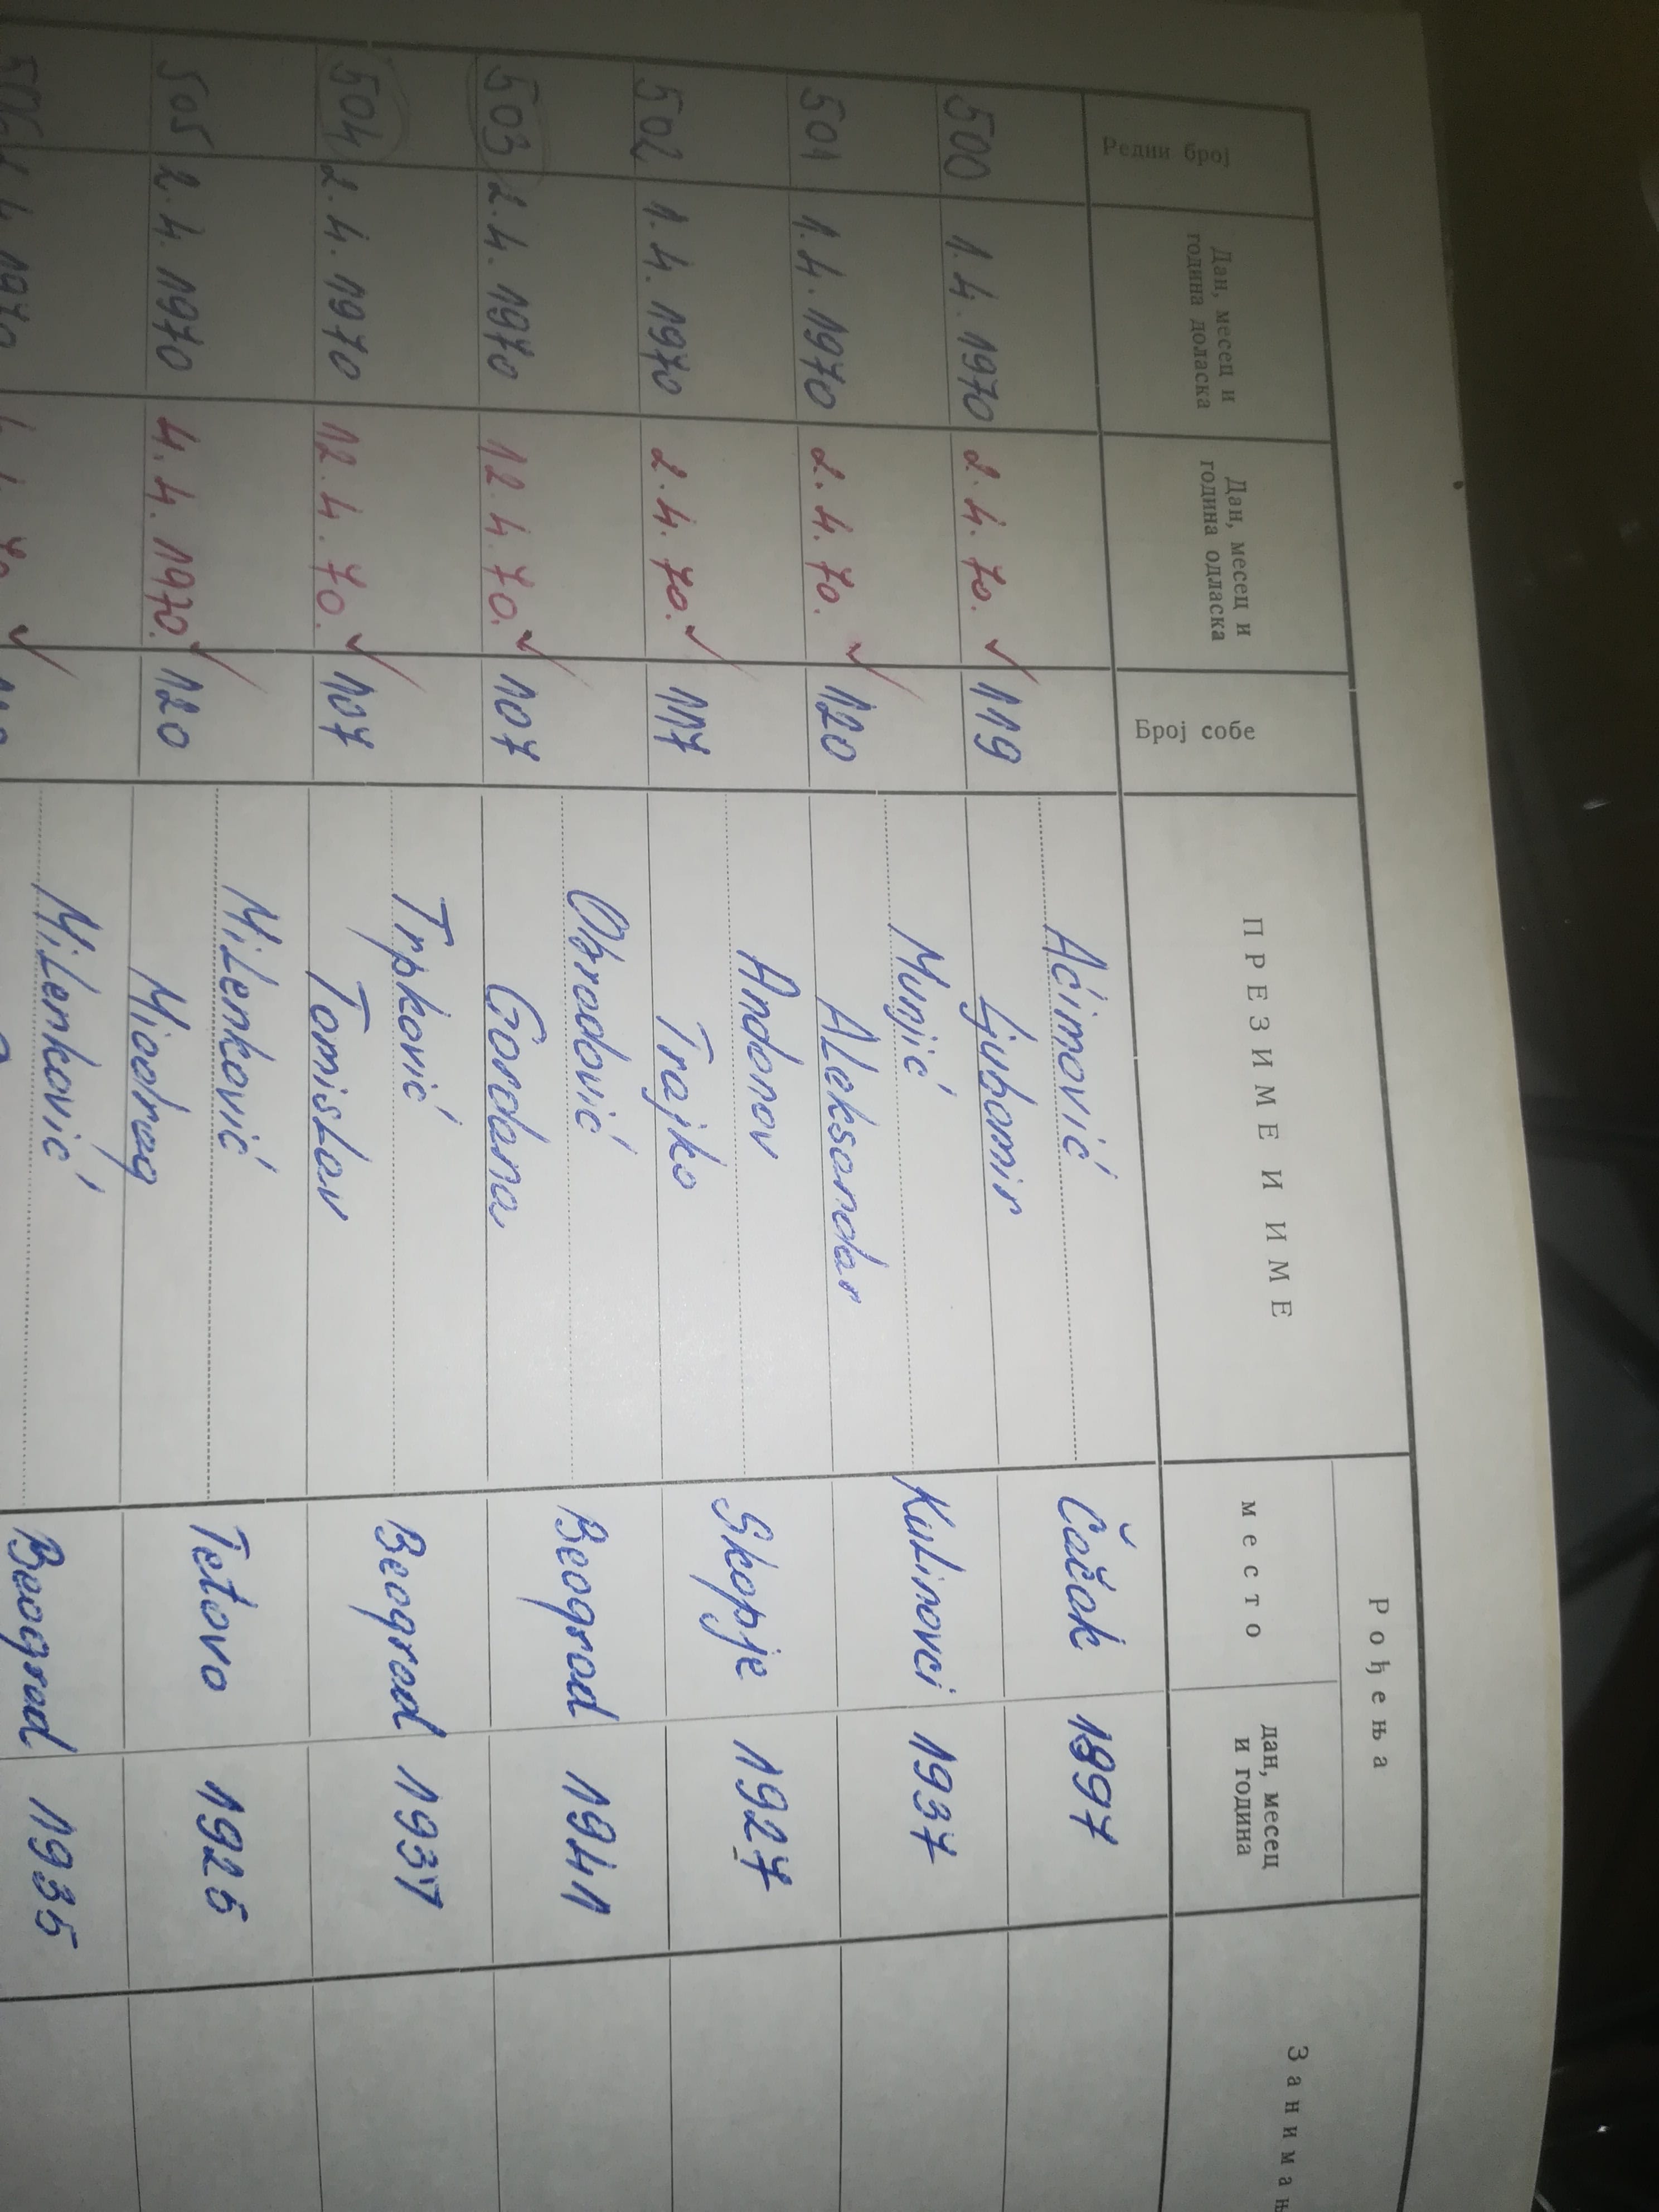 Редни број
Дан, месец и
година доласка
Дан, месец и
година одласка
Број собе
ПРЕЗИМЕ И ИМЕ
Рођења
место
дан, месец
и година
500 1.4.1970 2.4.70. ✓ 119
Aćimović
Ljubomir
Čačak 1897
501 1.4.1970 2.4.70. ✓ 120
Munjić
Aleksandar
Kulinovci 1937
502 1.4.1970 2.4.70. ✓ 117
Andonov
Trajko
Skopje 1927
503 2.4.1970 12.4.70. ✓ 107
Obradović
Gordana
Beograd 1941
504 2.4.1970 12.4.70. ✓ 107
Trpković
Tomislav
Beograd 1937
505 2.4.1970 4.4.1970. ✓ 120
Milenković
Miodrag
Tetovo 1925
506
Milenković
Beograd 1935